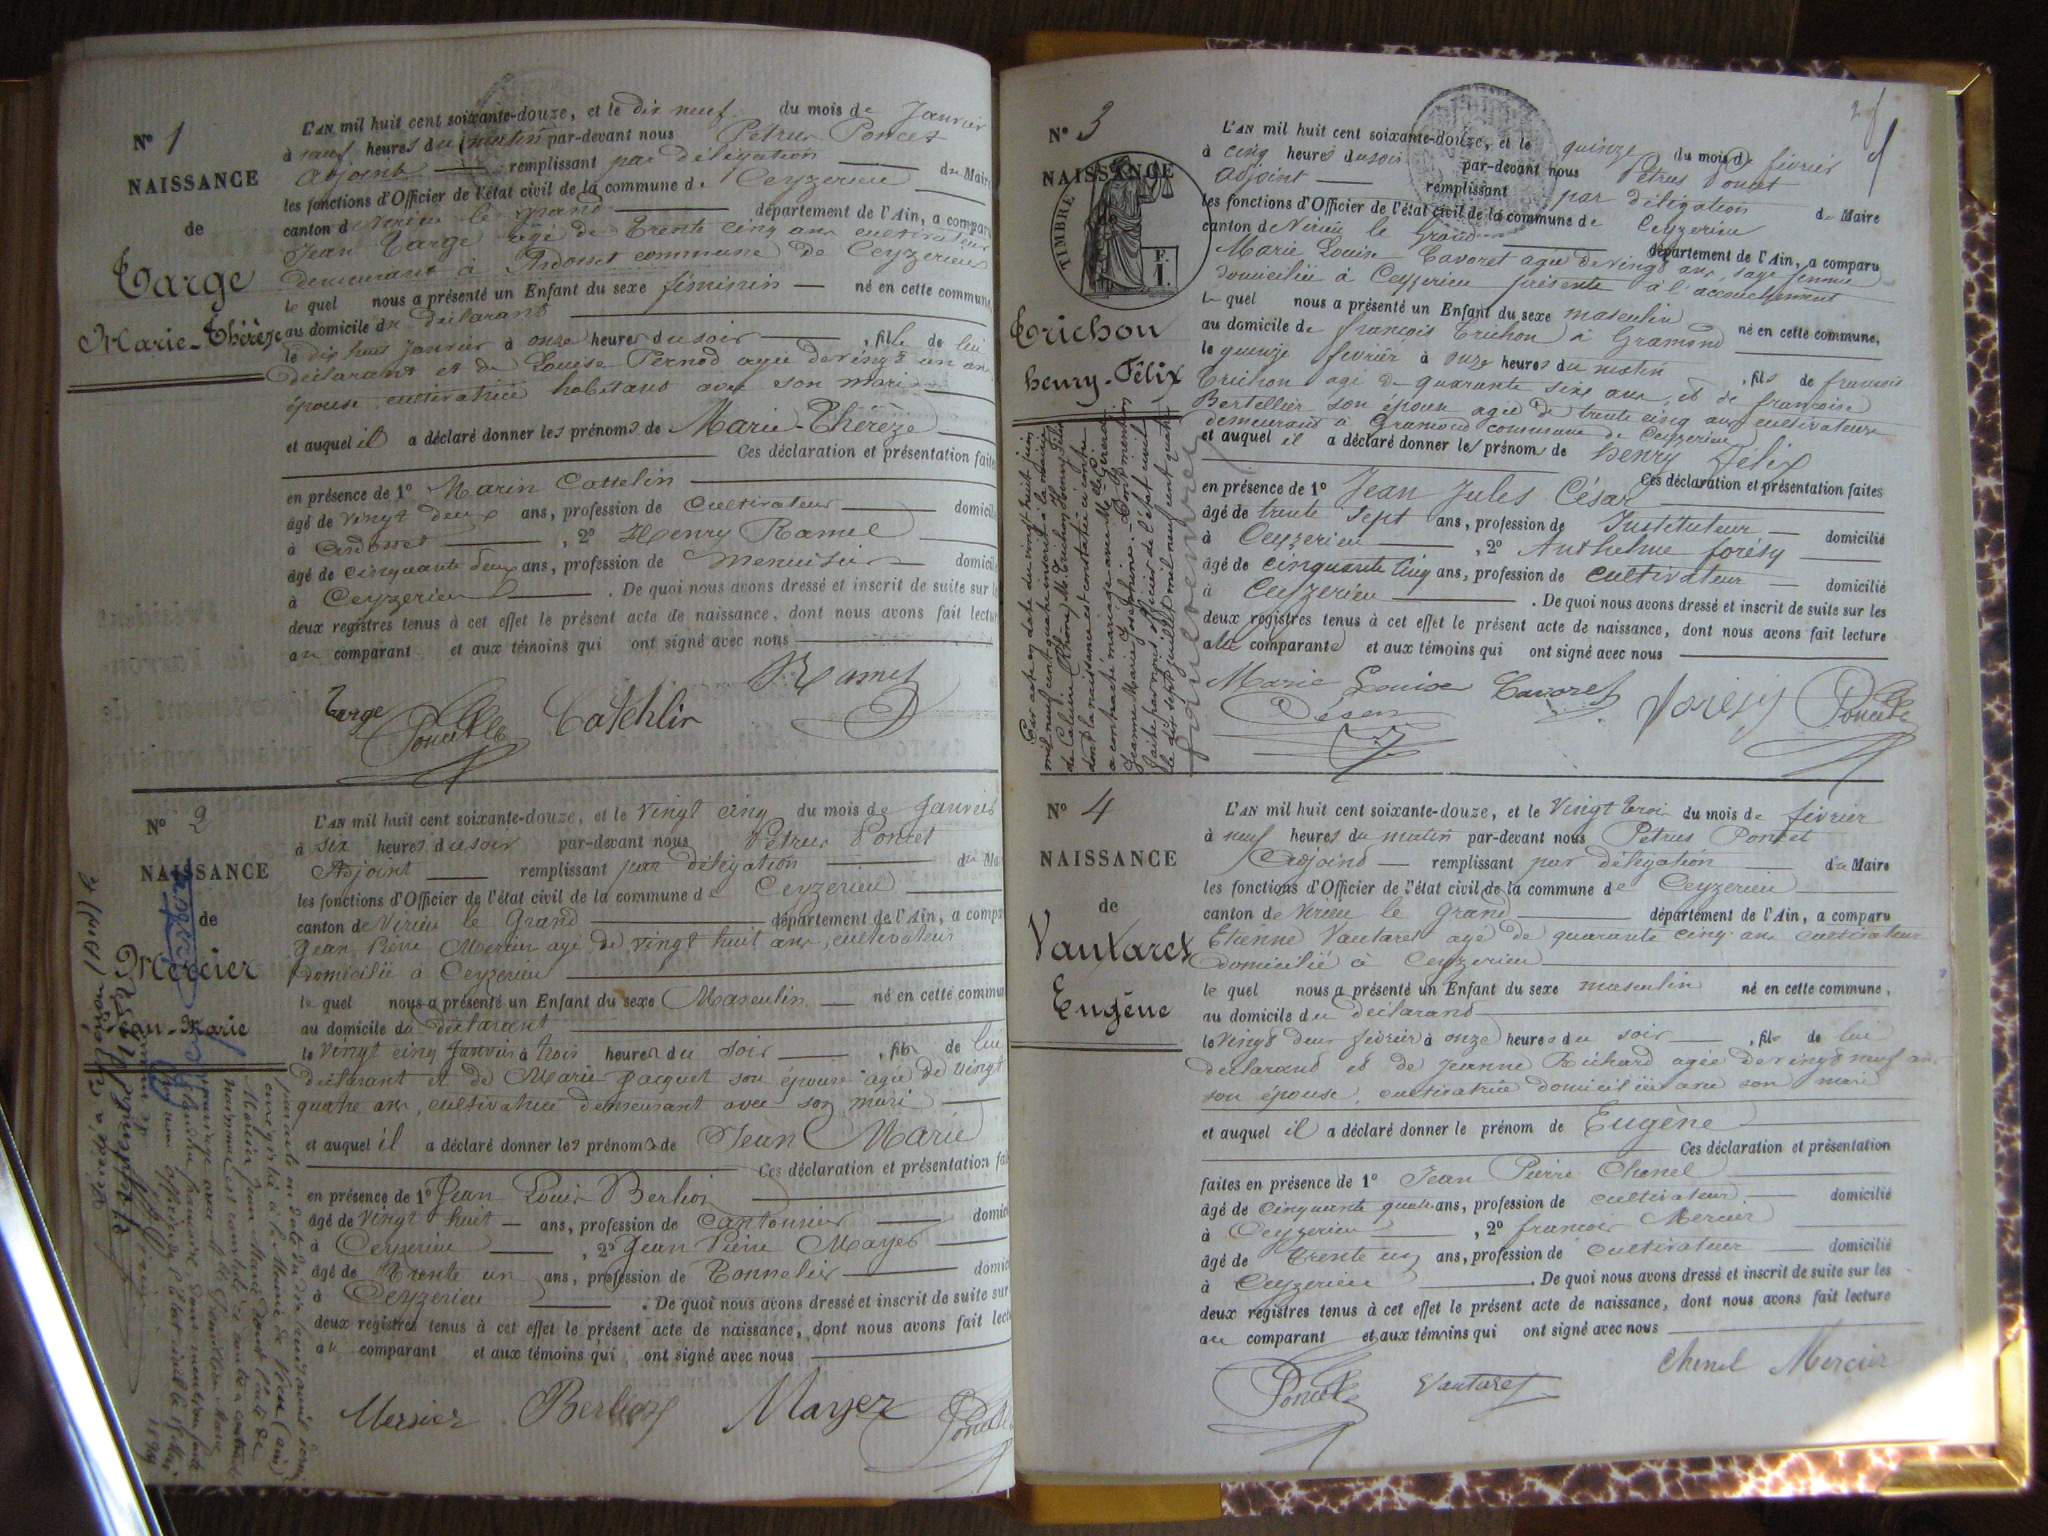 N° 1
NAISSANCE
de
Targe
Marie-Thérèze
L'AN mil huit cent soixante-douze, et le dix neuf du mois de Janvier
à neuf heures du matin par-devant nous Petrus Poncet
adjoint remplissant par délégation du Maire
les fonctions d'Officier de l'état civil de la commune de Ceyzerieu
canton de Virieu le grand département de l'Ain, a comparu
Jean Targe âgé de Trente cinq ans cultivateur
demeurant à Ardosset commune de Ceyzerieu
lequel nous a présenté un Enfant du sexe féminin né en cette commune,
au domicile du déclarant
le dix huit Janvier à onze heures du soir, fille de lui
déclarant et de Louise Pernod agée de vingt un ans
épouse cultivatrice habitant avec son mari
et auquel il a déclaré donner les prénoms de Marie-Thérèze
Ces déclaration et présentation faites
en présence de 1° Marin Cattelin
âgé de vingt deux ans, profession de Cultivateur domicilié
à Ardosset, 2° Henry Ramel
âgé de cinquante deux ans, profession de Menuisier domicilié
à Ceyzerieu. De quoi nous avons dressé et inscrit de suite sur les
deux registres tenus à cet effet le présent acte de naissance, dont nous avons fait lecture
au comparant et aux témoins qui ont signé avec nous
Ramel
Targe Poncet
N° 2
NAISSANCE
de
Mercier
Jean-Marie
L'AN mil huit cent soixante-douze, et le vingt cinq du mois de Janvier
à six heures du soir par-devant nous Petrus Poncet
Adjoint remplissant par délégation du Maire
les fonctions d'Officier de l'état civil de la commune de Ceyzerieu
canton de Virieu le Grand département de l'Ain, a comparu
Jean Pierre Mercier agé de vingt huit ans, cultivateur
domicilié à Ceyzerieu
lequel nous a présenté un Enfant du sexe Masculin né en cette commune
au domicile du déclarant
le vingt cinq Janvier à trois heures du soir, fils de lui
déclarant et de Marie Jacquet son épouse agée de vingt
quatre ans, cultivatrice demeurant avec son mari
et auquel il a déclaré donner les prénoms de Jean Marie
Ces déclaration et présentation faites
en présence de 1° Jean Louis Berlioz
âgé de vingt huit ans, profession de Cantonnier domicilié
à Ceyzerieu, 2° Jean Pierre Mayer
âgé de Trente un ans, profession de Tonnelier domicilié
à Ceyzerieu. De quoi nous avons dressé et inscrit de suite sur
deux registres tenus à cet effet le présent acte de naissance, dont nous avons fait lecture
au comparant et aux témoins qui ont signé avec nous
Mersier Berlioz Mayer Poncet
N° 3
NAISSANCE
TIMBRE
F.
1.
Trichon
henry-Félix
L'AN mil huit cent soixante-douze, et le quinze du mois de février
à cinq heures du soir par-devant nous Petrus Poncet
adjoint remplissant par délégation du Maire
les fonctions d'Officier de l'état civil de la commune de Ceyzerieu
canton de Virieu le Grand département de l'Ain, a comparu
Marie Louise Tavoret agée de vingt ans, sage femme
domiciliée à Ceyzerieu présente à l'accouchement
lequel nous a présenté un Enfant du sexe masculin né en cette commune,
au domicile de françois Trichon à Gramond
le quinze février à onze heures du matin, fils de françois
Trichon agé de quarante sixe ans, et de françoise
Bertellier son épouse agée de trente cinq ans cultivateurs
demeurant à Gramond commune de Ceyzerieu
et auquel il a déclaré donner les prénom de henry félix
Ces déclaration et présentation faites
en présence de 1° Jean Jules César
âgé de trente sept ans, profession de Instituteur domicilié
à Ceyzerieu, 2° Anthelme forésy
âgé de cinquante cinq ans, profession de cultivateur domicilié
à Ceyzerieu. De quoi nous avons dressé et inscrit de suite sur les
deux registres tenus à cet effet le présent acte de naissance, dont nous avons fait lecture
à la comparante et aux témoins qui ont signé avec nous
Marie Louise Tavoret
Poncet
Par acte en date du vingt huit juin
mil neuf cent quatre inscrit à la mairie
de Caluire (Rhône) M. Trichon Henry Félix
dont la naissance est constatée ci contre
a contracté mariage avec Melle Girerd
Jeanne Marie Joséphine. Dont mention
faite par nous officier de l'état civil
le dix sept juillet mil neuf cent quatre
N° 4
NAISSANCE
de
Vautaret
Eugène
L'AN mil huit cent soixante-douze, et le vingt trois du mois de février
à neuf heures du matin par-devant nous Petrus Poncet
Adjoint remplissant par délégation du Maire
les fonctions d'Officier de l'état civil de la commune de Ceyzerieu
canton de Virieu le grand département de l'Ain, a comparu
Etienne Vautaret agé de quarante cinq ans cultivateur
domicilié à Ceyzerieu
lequel nous a présenté un Enfant du sexe masculin né en cette commune,
au domicile du déclarant
le vingt deux février à onze heures du soir, fils de lui
déclarant et de Jeanne Richard agée de vingt neuf ans
son épouse, cultivatrice domiciliée avec son mari
et auquel il a déclaré donner le prénom de Eugène
Ces déclaration et présentation
faites en présence de 1° Jean Pierre Chenel
âgé de cinquante quatre ans, profession de cultivateur domicilié
à Ceyzerieu, 2° françois Mercier
âgé de Trente un ans, profession de cultivateur domicilié
à Ceyzerieu. De quoi nous avons dressé et inscrit de suite sur les
deux registres tenus à cet effet le présent acte de naissance, dont nous avons fait lecture
au comparant et aux témoins qui ont signé avec nous
Poncet Vautaret Chenel Mercier